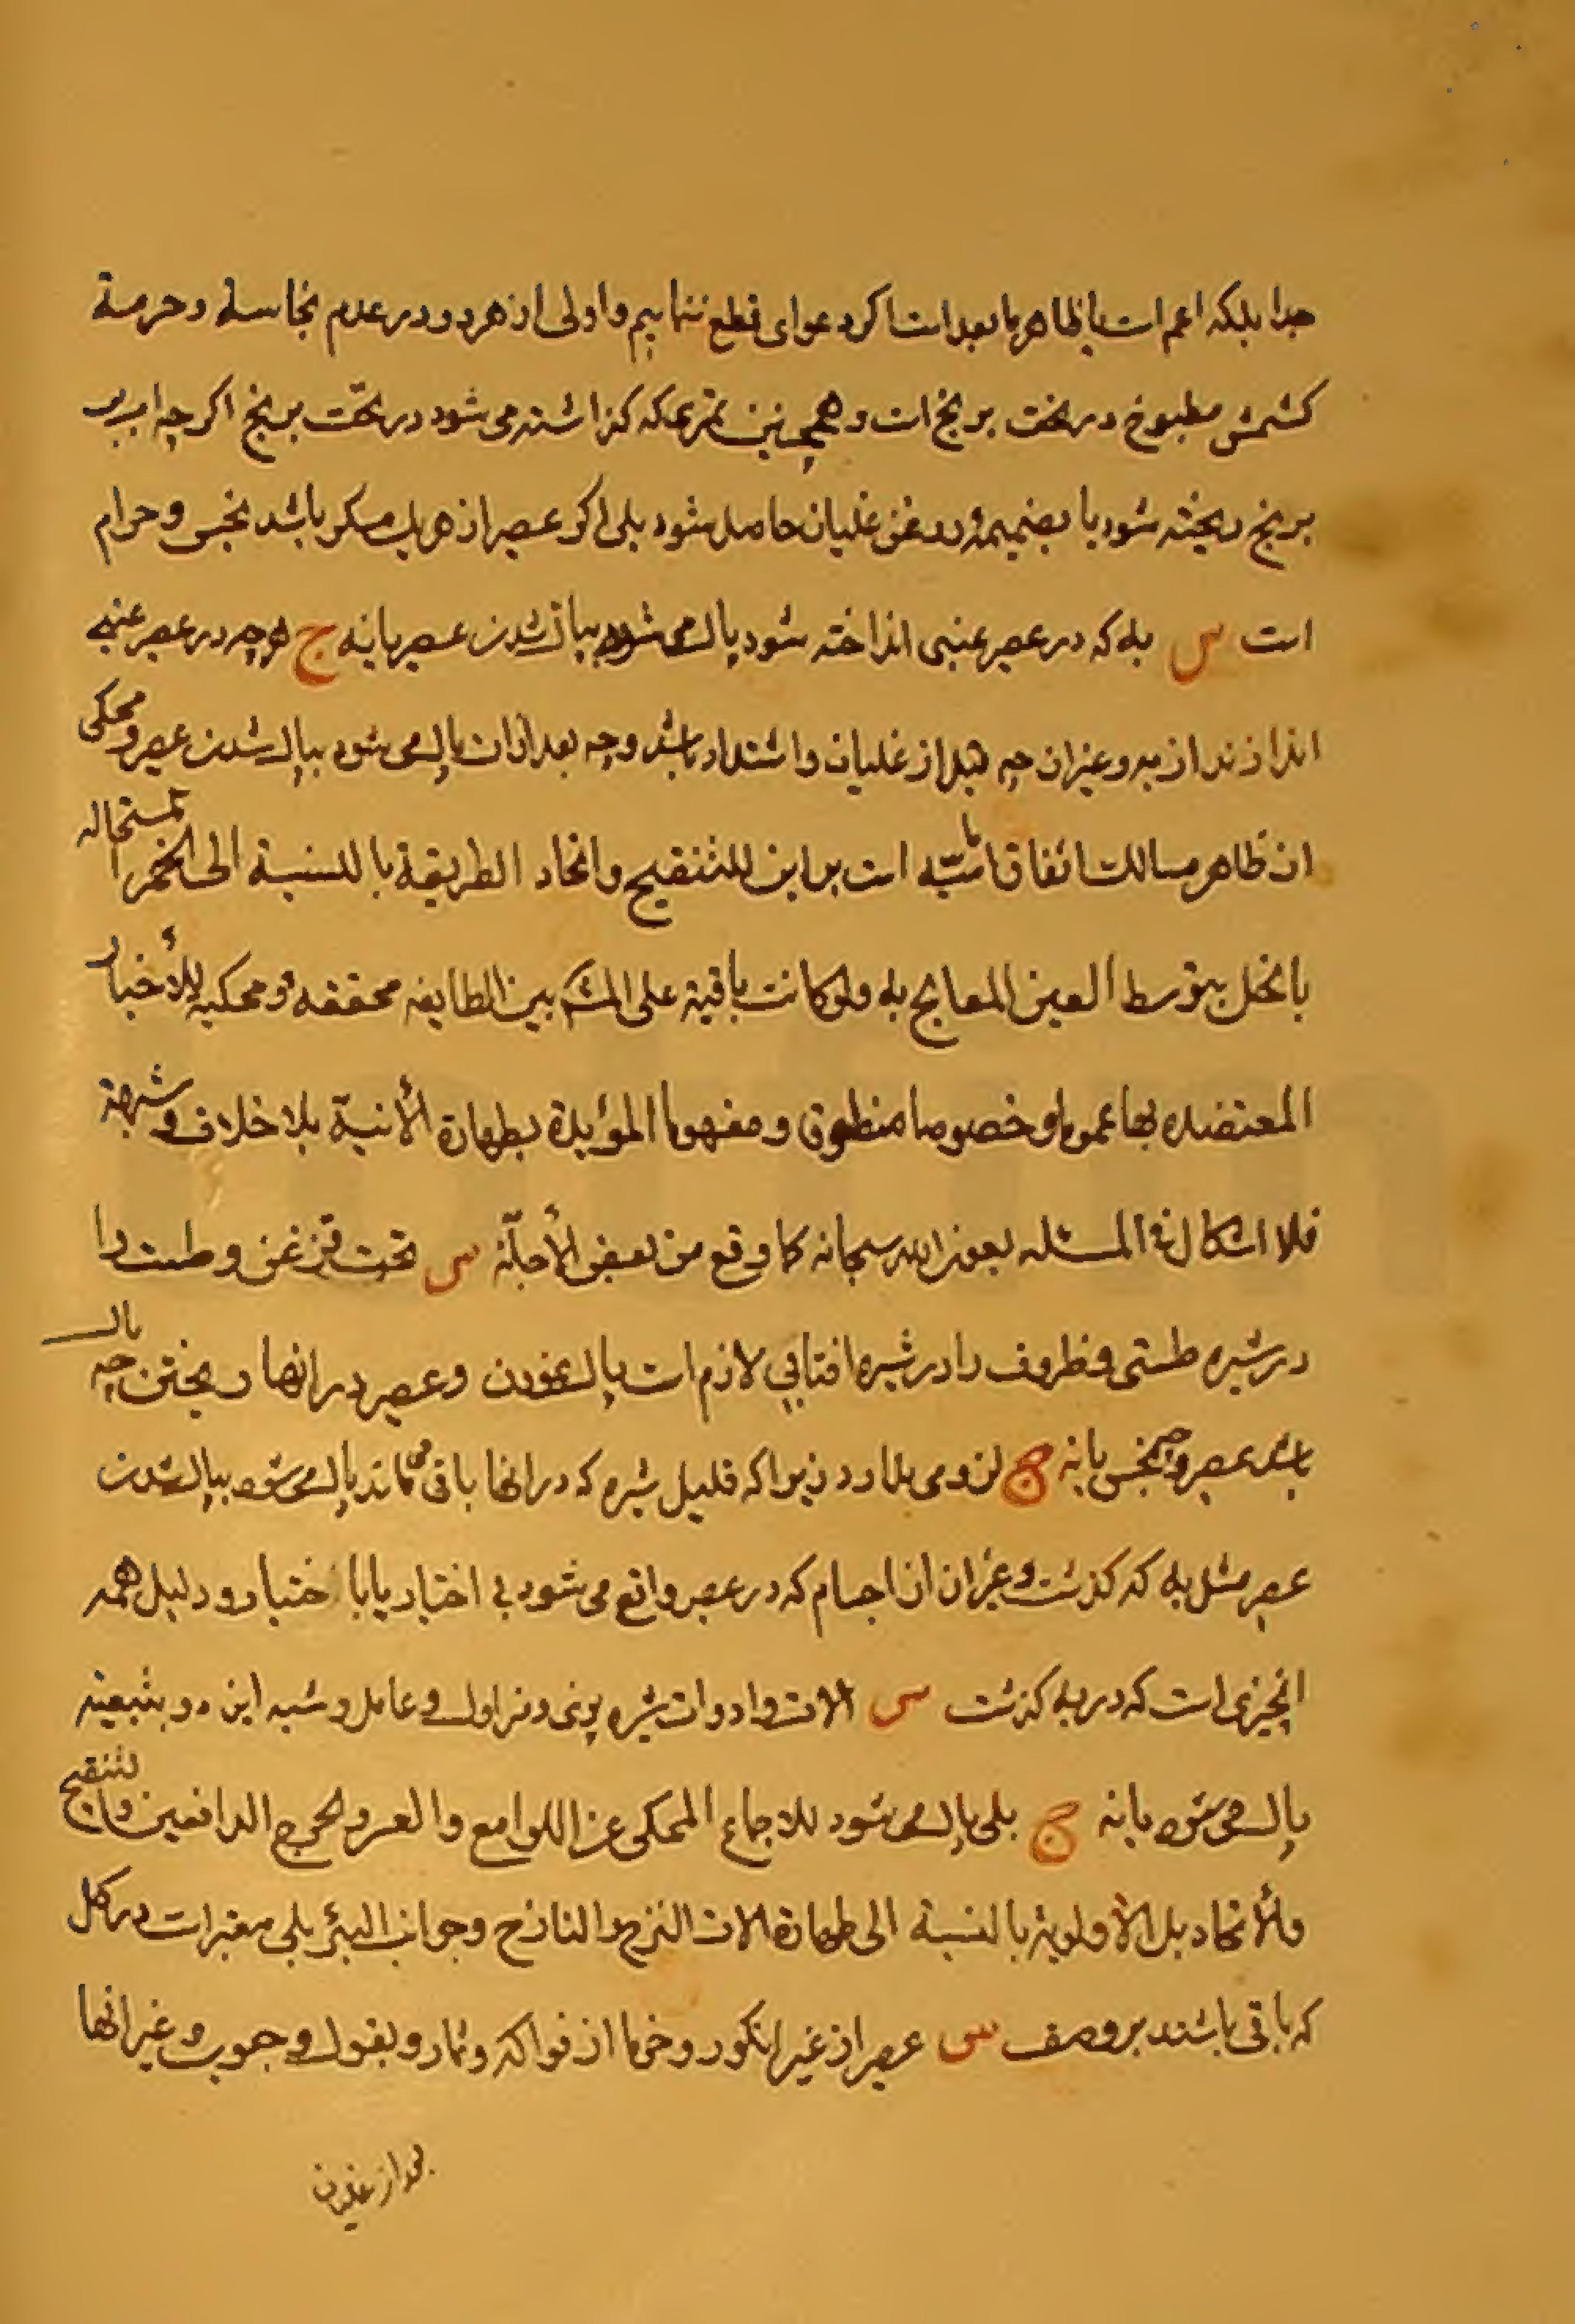 جدا بلکه اعم است یا ظاهر یا بعد است اکر دعوای قطع ننمائیم و اولی از هر دو در عدم نجاسة و حرمة
کشمش مطبوخ در تحت برنج است و همچنین تمریکه کذاشته می شود در تحت برنج اکرچه اب بر
برنج ریخته شود یا بضمیمه روغن غلیان حاصل شود بلی اکر عصیر از هر یک مسکر باشد نجس و حرام
است س به که در عصیر عنبی انداخته شود پاک می شود بپاک شدن عصیر یا نه ج هرچه در عصیر عنبی
اندازند از به و غیر ان چه قبل از غلیان و اشتداد باشد و چه بعد از ان پاک می شود بپاک شدن عصیر و محکی
از ظاهر مسالک اتفاق امامیّه است بر این للتنقیح و اتحاد الطریقة بالنسبة الی الخمر المستحاله
بالخل بتوسط العین المعالج به ولو کانت باقیة علی المش بین الطایفه محققه و محکیه للأخبار
المعتضده بها عموما و خصوصا منطوق و مفهوما المؤیدة بطهارة الأنیة بلا خلاف و شبهة
فلا اشکال فی المسئله بعون الله سبحانه کما وقع من بعض الأجلّة س تحت قزغن و طست را
در شیره طستی و ظروف را در شیره افتابی لازم است پاک نمودن و عصیر در انها ریختن چه پاک
باشد عصیر و چه نجس یا نه ج لزومی ندارد زیرا که قلیل شیره که در انها باقی می ماند پاک می شود بپاک شدن
عصیر مثل به که کذشت و غیر ان از اجسام که در عصیر واقع می شود بی اختیار یا با اختیار و دلیل همه
انچیزی است که در به کذشت س الات و ادوات شیره پزی و مزاول و عامل و شبه این دو بتبعیة
پاک می شود یا نه ج بلی پاک می شود للاجماع المحکی عن اللوامع و العسر و الحرج الدافعین و لتنقیح
و لأتحاد بل الأولویة بالنسبة الی طهارة الات النزح و النازح و جوانب البئر بلی معتبر است در کل
که باقی باشند بر وصف س عصیر از غیر انکور و خرما از فواکه و ثمار و بقول و حبوب و غیر انها
بعد از غلیان